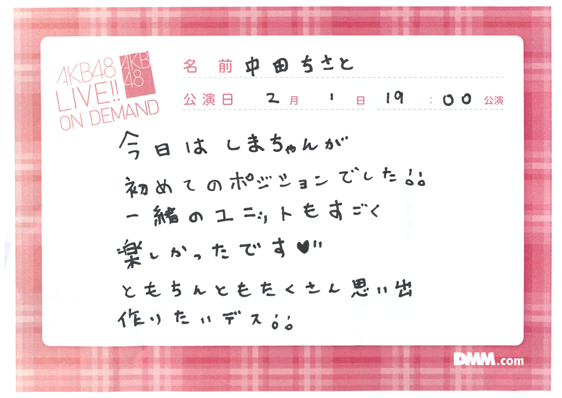 AKB48
LIVE!!
ON DEMAND
AKB
48
名前 中田ちさと
公演日 2月1日 19:00公演
今日はしまちゃんが
初めてのポジションでした!!
一緒のユニットもすごく
楽しかったです♥!!
ともちんともたくさん思い出
作りたいデス!!
DMM.com